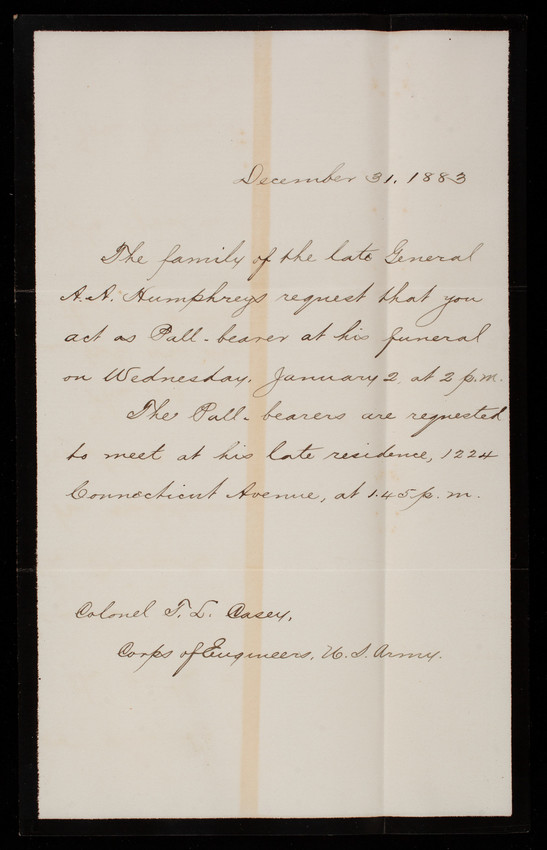 December 31, 1883
The family of the late General
A. A. Humphreys request that you
act as Pall-bearer at his funeral
on Wednesday, January 2, at 2 p.m.
The Pall-bearers are requested
to meet at his late residence, 1224
Connecticut Avenue, at 1.45 p.m.
Colonel T. L. Casey,
Corps of Engineers, U. S. Army.